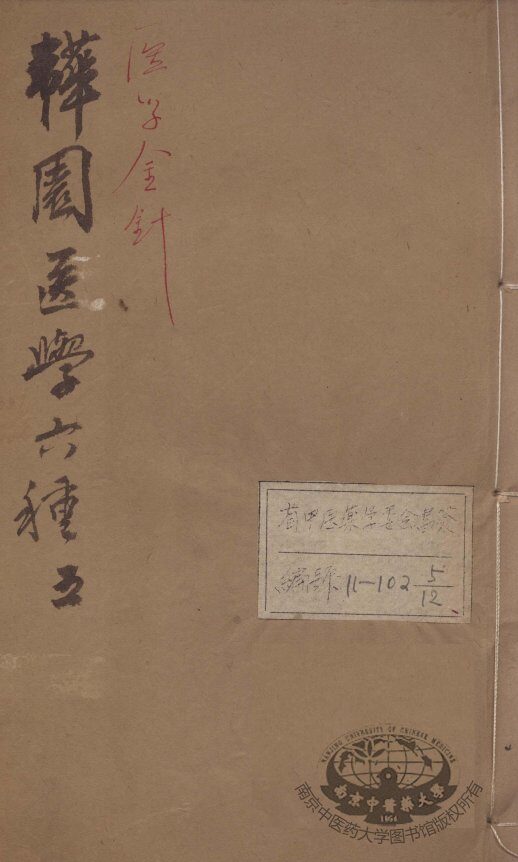 韡園医學六種 五
医学金針
省中医药学委会
編號 11-102 5/12
NANJING UNIVERSITY OF CHINESE MEDICINE
南京中醫藥大學
1954
南京中医药大学图书馆版权所有